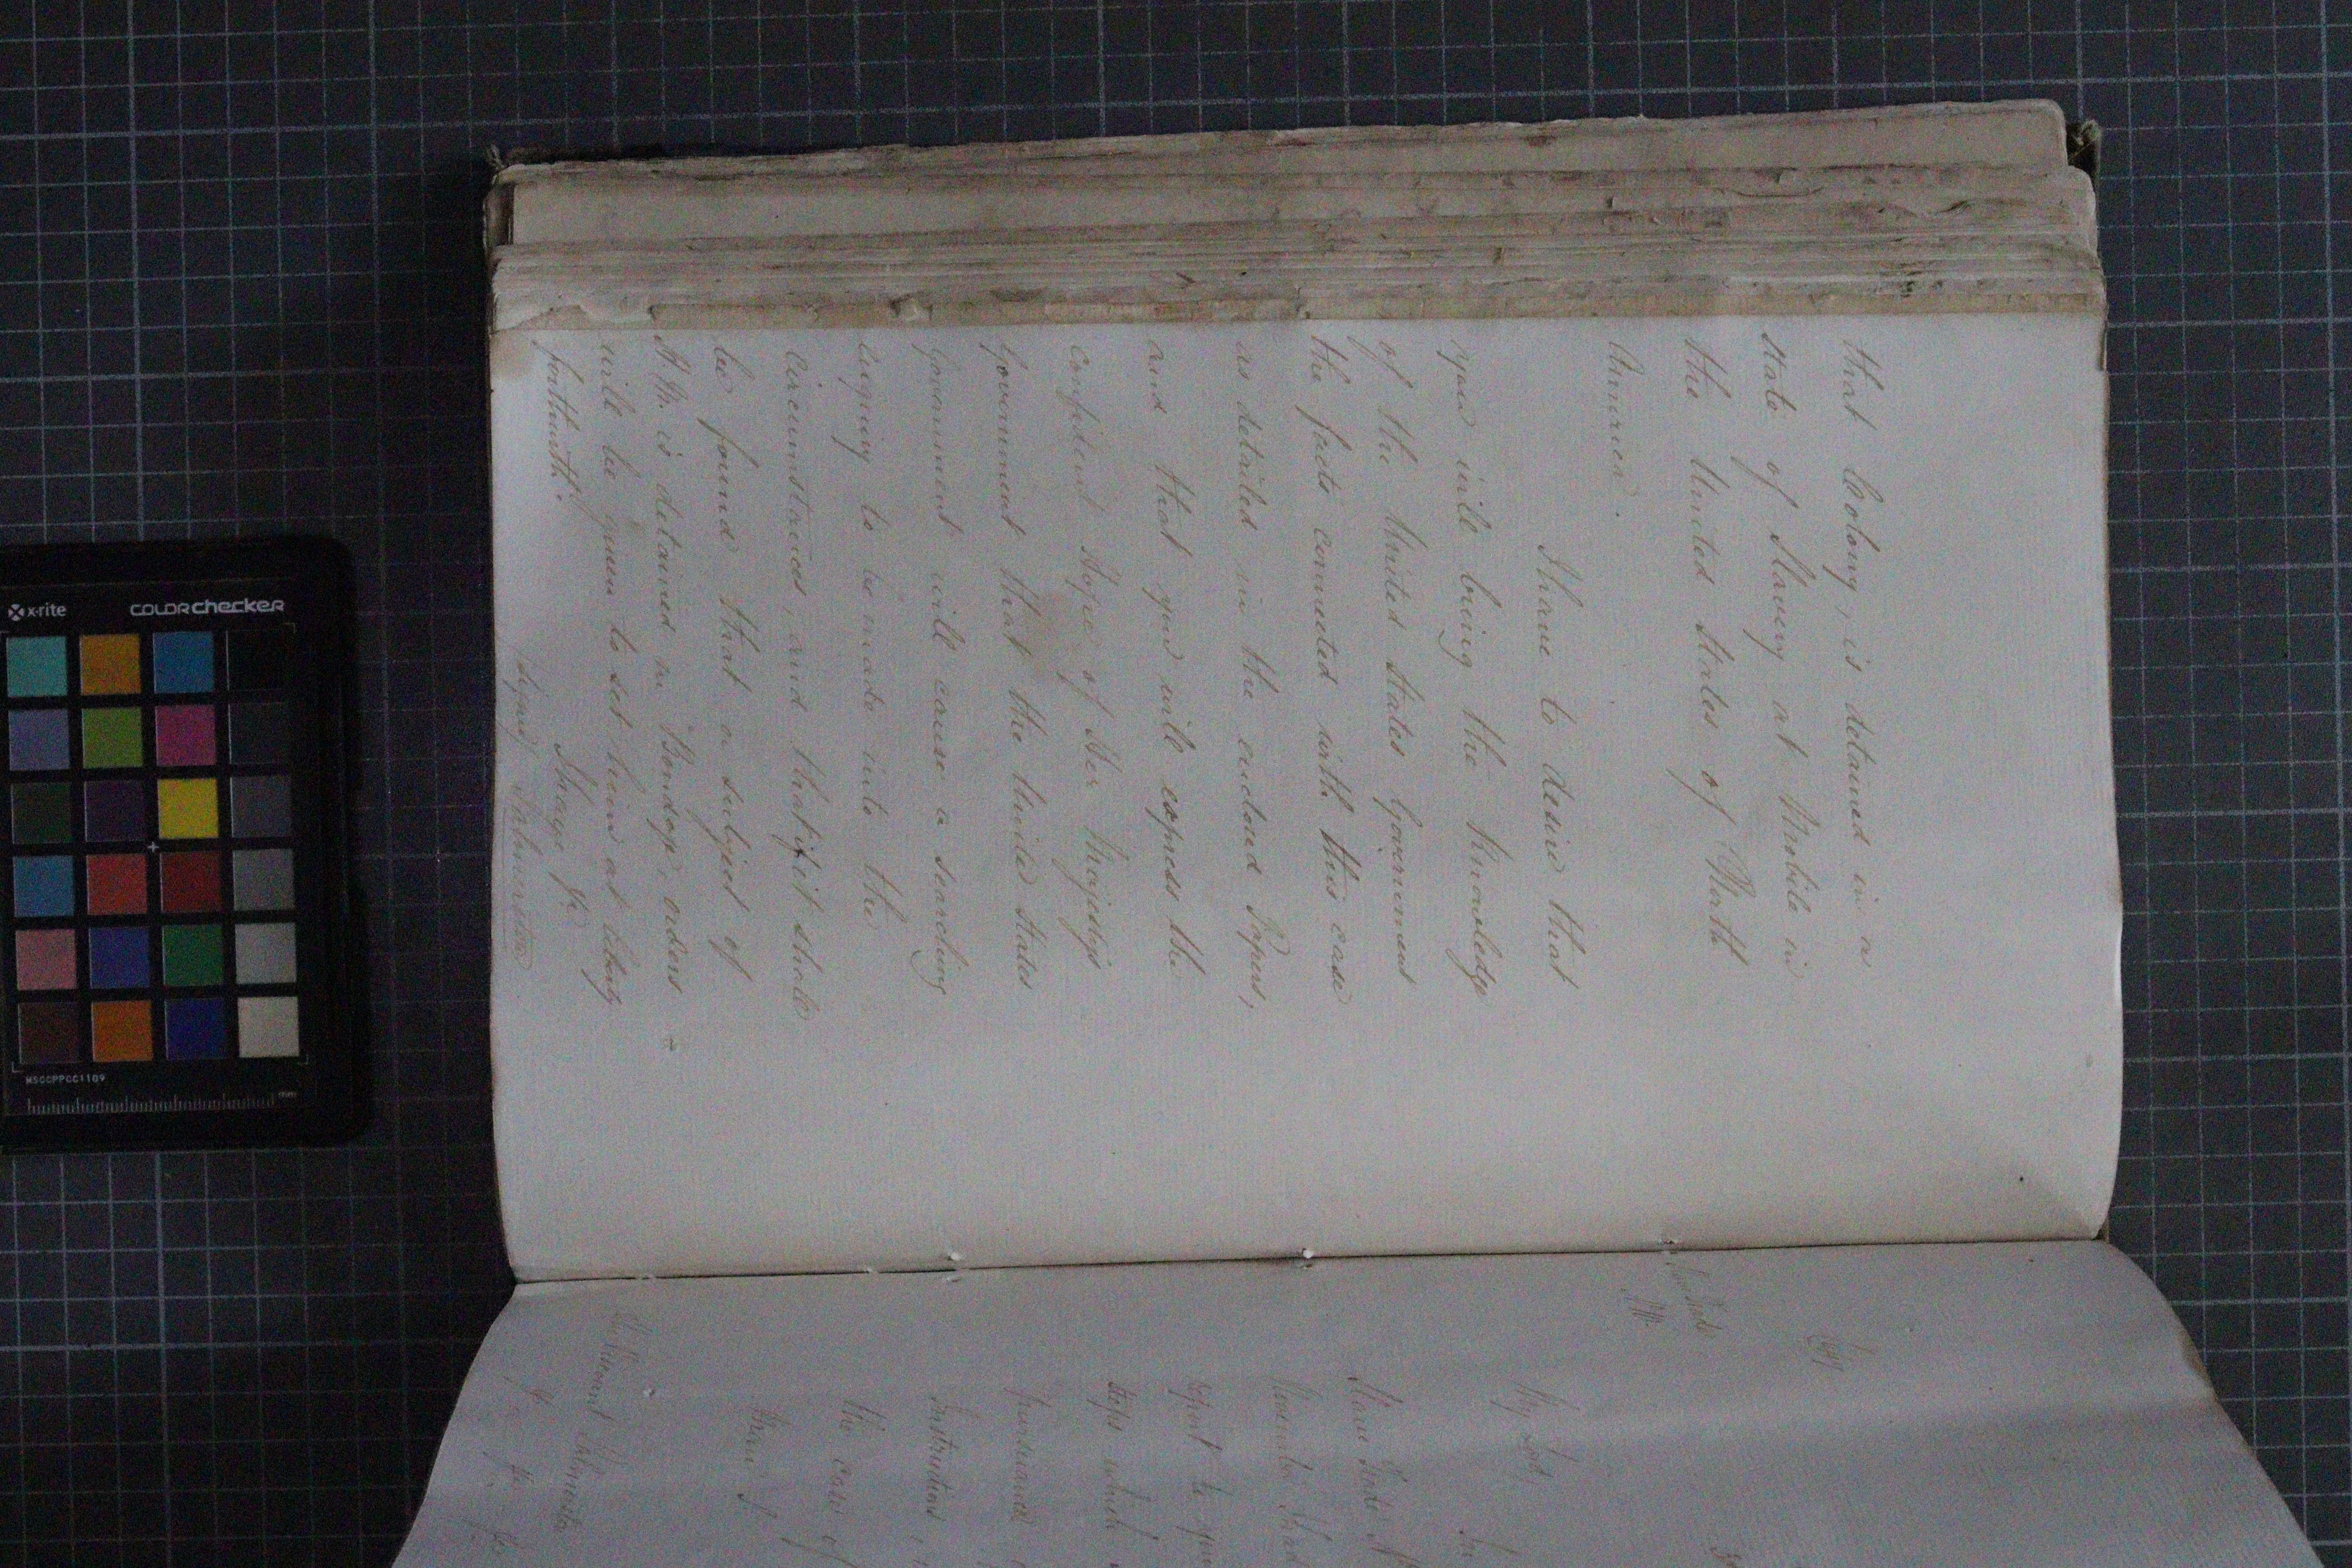 that Colony, is detained in a
state of Slavery at Mobile in
the United States of North
America.
I have to desire that
you will bring the knowledge
of the United States Government
the facts connected with this case
as detailed in the enclosed Papers,
and that you will express the
confident hope of Her Majesty's
Government that the United States
Government will cause a searching
inquiry to be made into the
circumstances, and that if it should
be found that a subject of
H.M. is detained in Bondage, orders
will be given to set him at liberty
forthwith.
I have &c
Signed Palmerston
Slave Trade
My Lord,
Slave Trade
November
report to you
steps which
pursuance
Instructions
the case of
Viscount Palmerston
&c &c &c
x-rite
COLORchecker
MSCCPPCC1109
mm